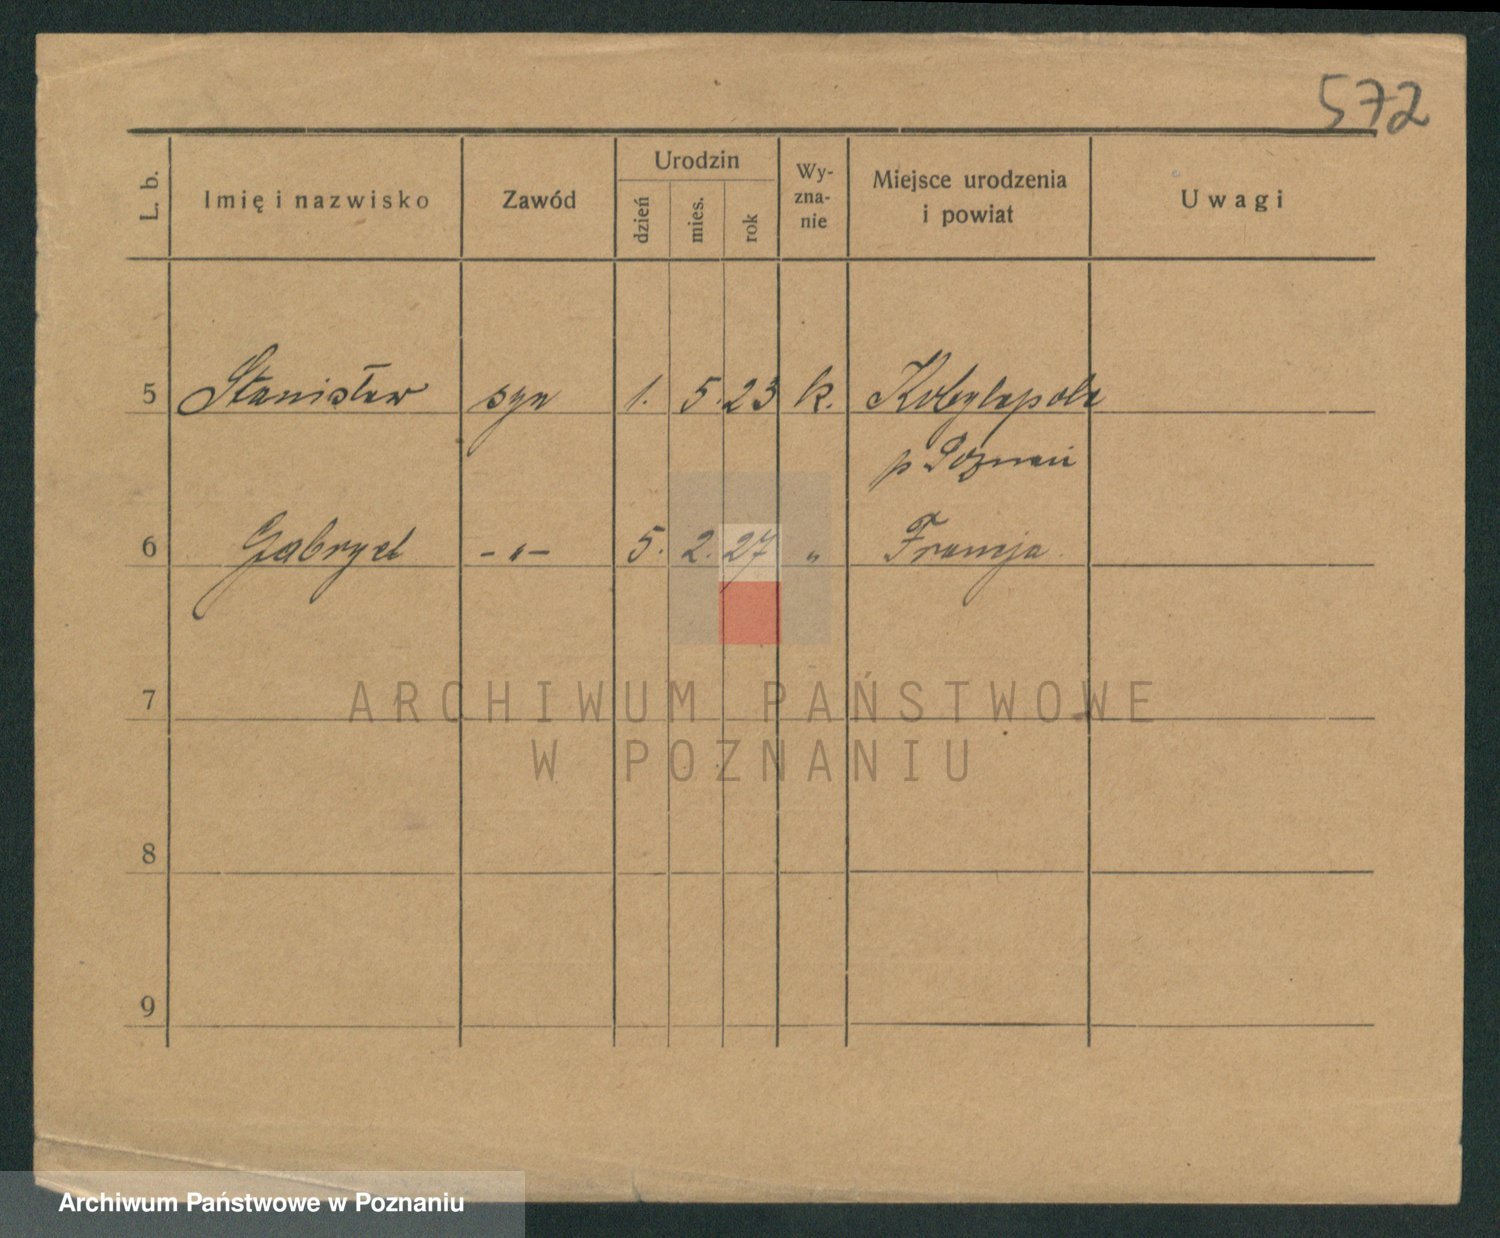 572
L. b. Imię i nazwisko Zawód Urodzin dzień mies. rok Wy-zna-nie Miejsce urodzenia i powiat Uwagi
5 Stanisław syn 1. 5. 23 k. Kobylepole
p Poznań
6 Gabryel -"- 5. 2. 27 " Francja
7
ARCHIWUM PAŃSTWOWE
W POZNANIU
8
9
Archiwum Państwowe w Poznaniu